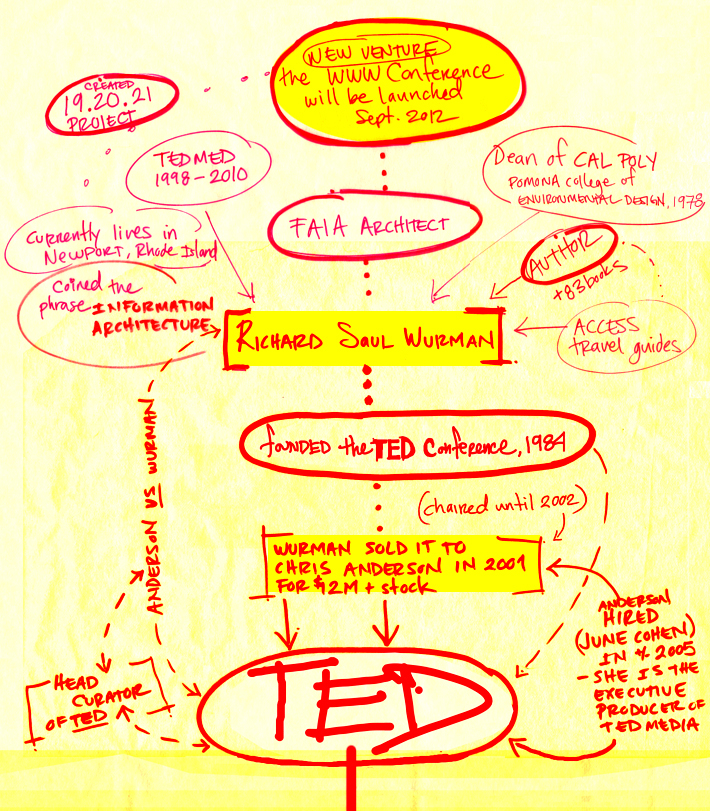 NEW VENTURE
the WWW Conference
will be launched
Sept. 2012
CREATED
19.20.21
PROJECT
TEDMED
1998-2010
Dean of CAL POLY
POMONA college of
ENVIRONMENTAL DESIGN, 1978
FAIA ARCHITECT
Currently lives in
NEWPORT, Rhode Island
AUTHOR
+83 books
Coined the
phrase INFORMATION
ARCHITECTURE
RICHARD SAUL WURMAN
ACCESS
travel guides
founded the TED Conference, 1984
ANDERSON VS WURMAN
(chaired until 2002)
WURMAN SOLD IT TO
CHRIS ANDERSON IN 2001
FOR $12M + stock
ANDERSON
HIRED
(JUNE COHEN)
IN 2005
- SHE IS THE
EXECUTIVE
PRODUCER OF
TED MEDIA
HEAD
CURATOR
OF TED
TED